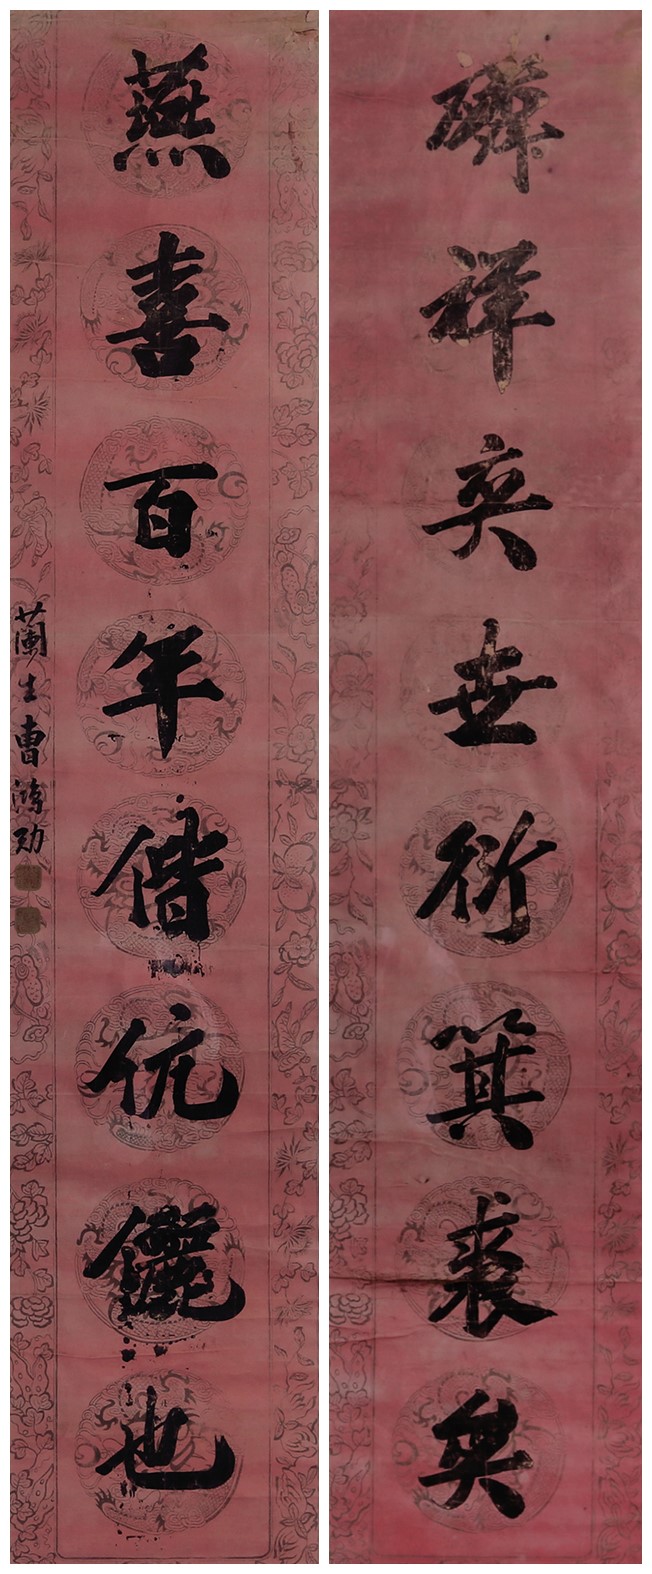 麟祥奕世衍箕裘矣
燕喜百年偕伉儷也
蘭生曹鴻勛